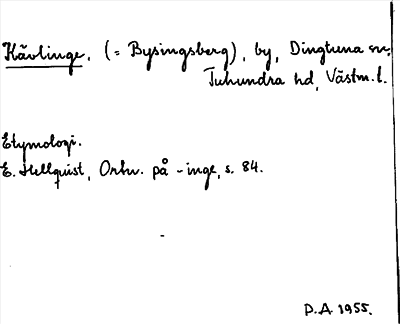 Kävlinge, (= Bysingsberg), by, Dingtuna sn,
Tuhundra hd, Västm. l.
Etymologi.
E. Hellquist, Ortn. på -inge, s. 84.
P.A. 1955.